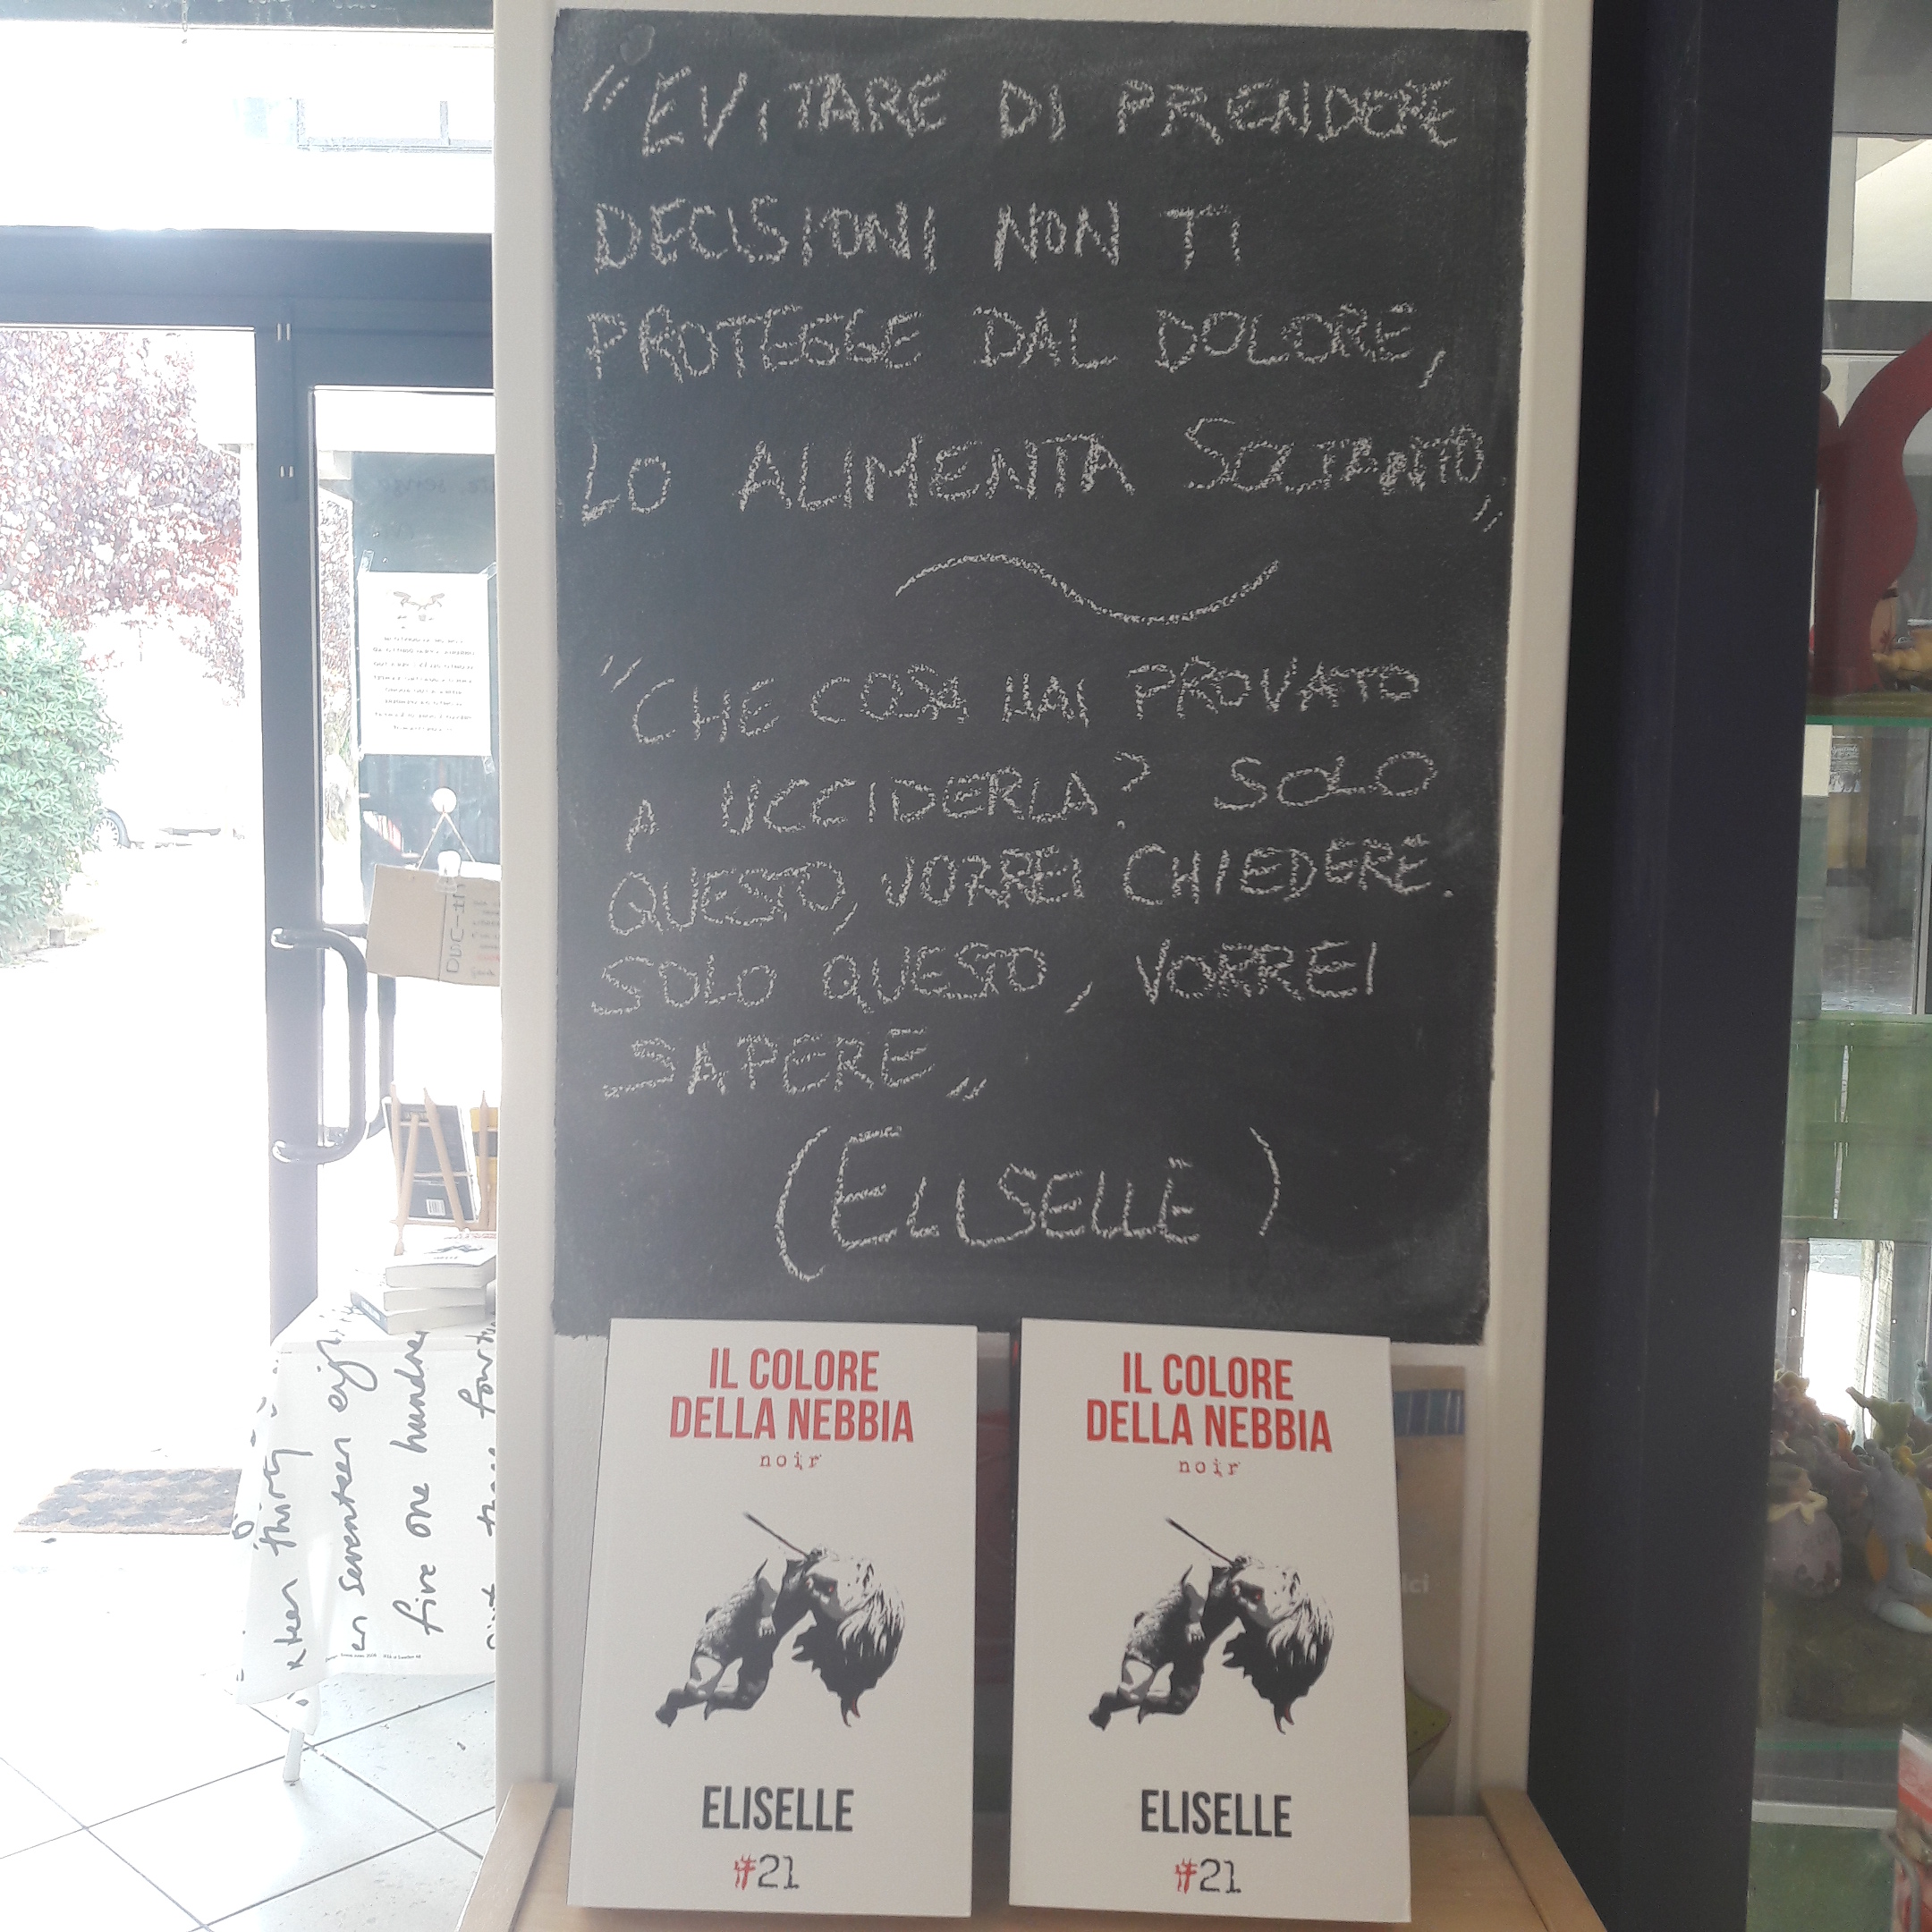 "EVITARE DI PRENDERE
DECISIONI NON TI
PROTEGGE DAL DOLORE,
LO ALIMENTA SOLTANTO„
"CHE COSA HAI PROVATO
A UCCIDERLA? SOLO
QUESTO, VORREI CHIEDERE.
SOLO QUESTO, VORREI
SAPERE„
(ELISELLE)
IL COLORE
DELLA NEBBIA
noir
ELISELLE
#21
IL COLORE
DELLA NEBBIA
noir
ELISELLE
#21
thirty
seventeen
five one hundre